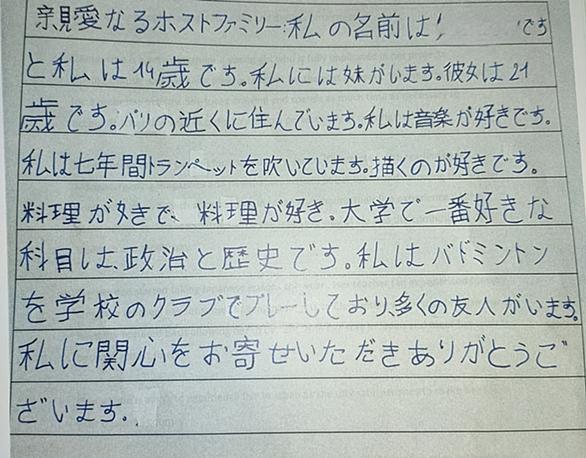 親愛なるホストファミリー:私の名前は! です
と私は14歳です。私には妹がいます。彼女は21
歳です。パリの近くに住んでいます。私は音楽が好きです。
私は七年間トランペットを吹いています。描くのが好きです。
料理が好きで、料理が好き。大学で一番好きな
科目は、政治と歴史です。私はバドミントン
を学校のクラブでプレーしており、多くの友人がいます。
私に関心をお寄せいただきありがとうご
ざいます。